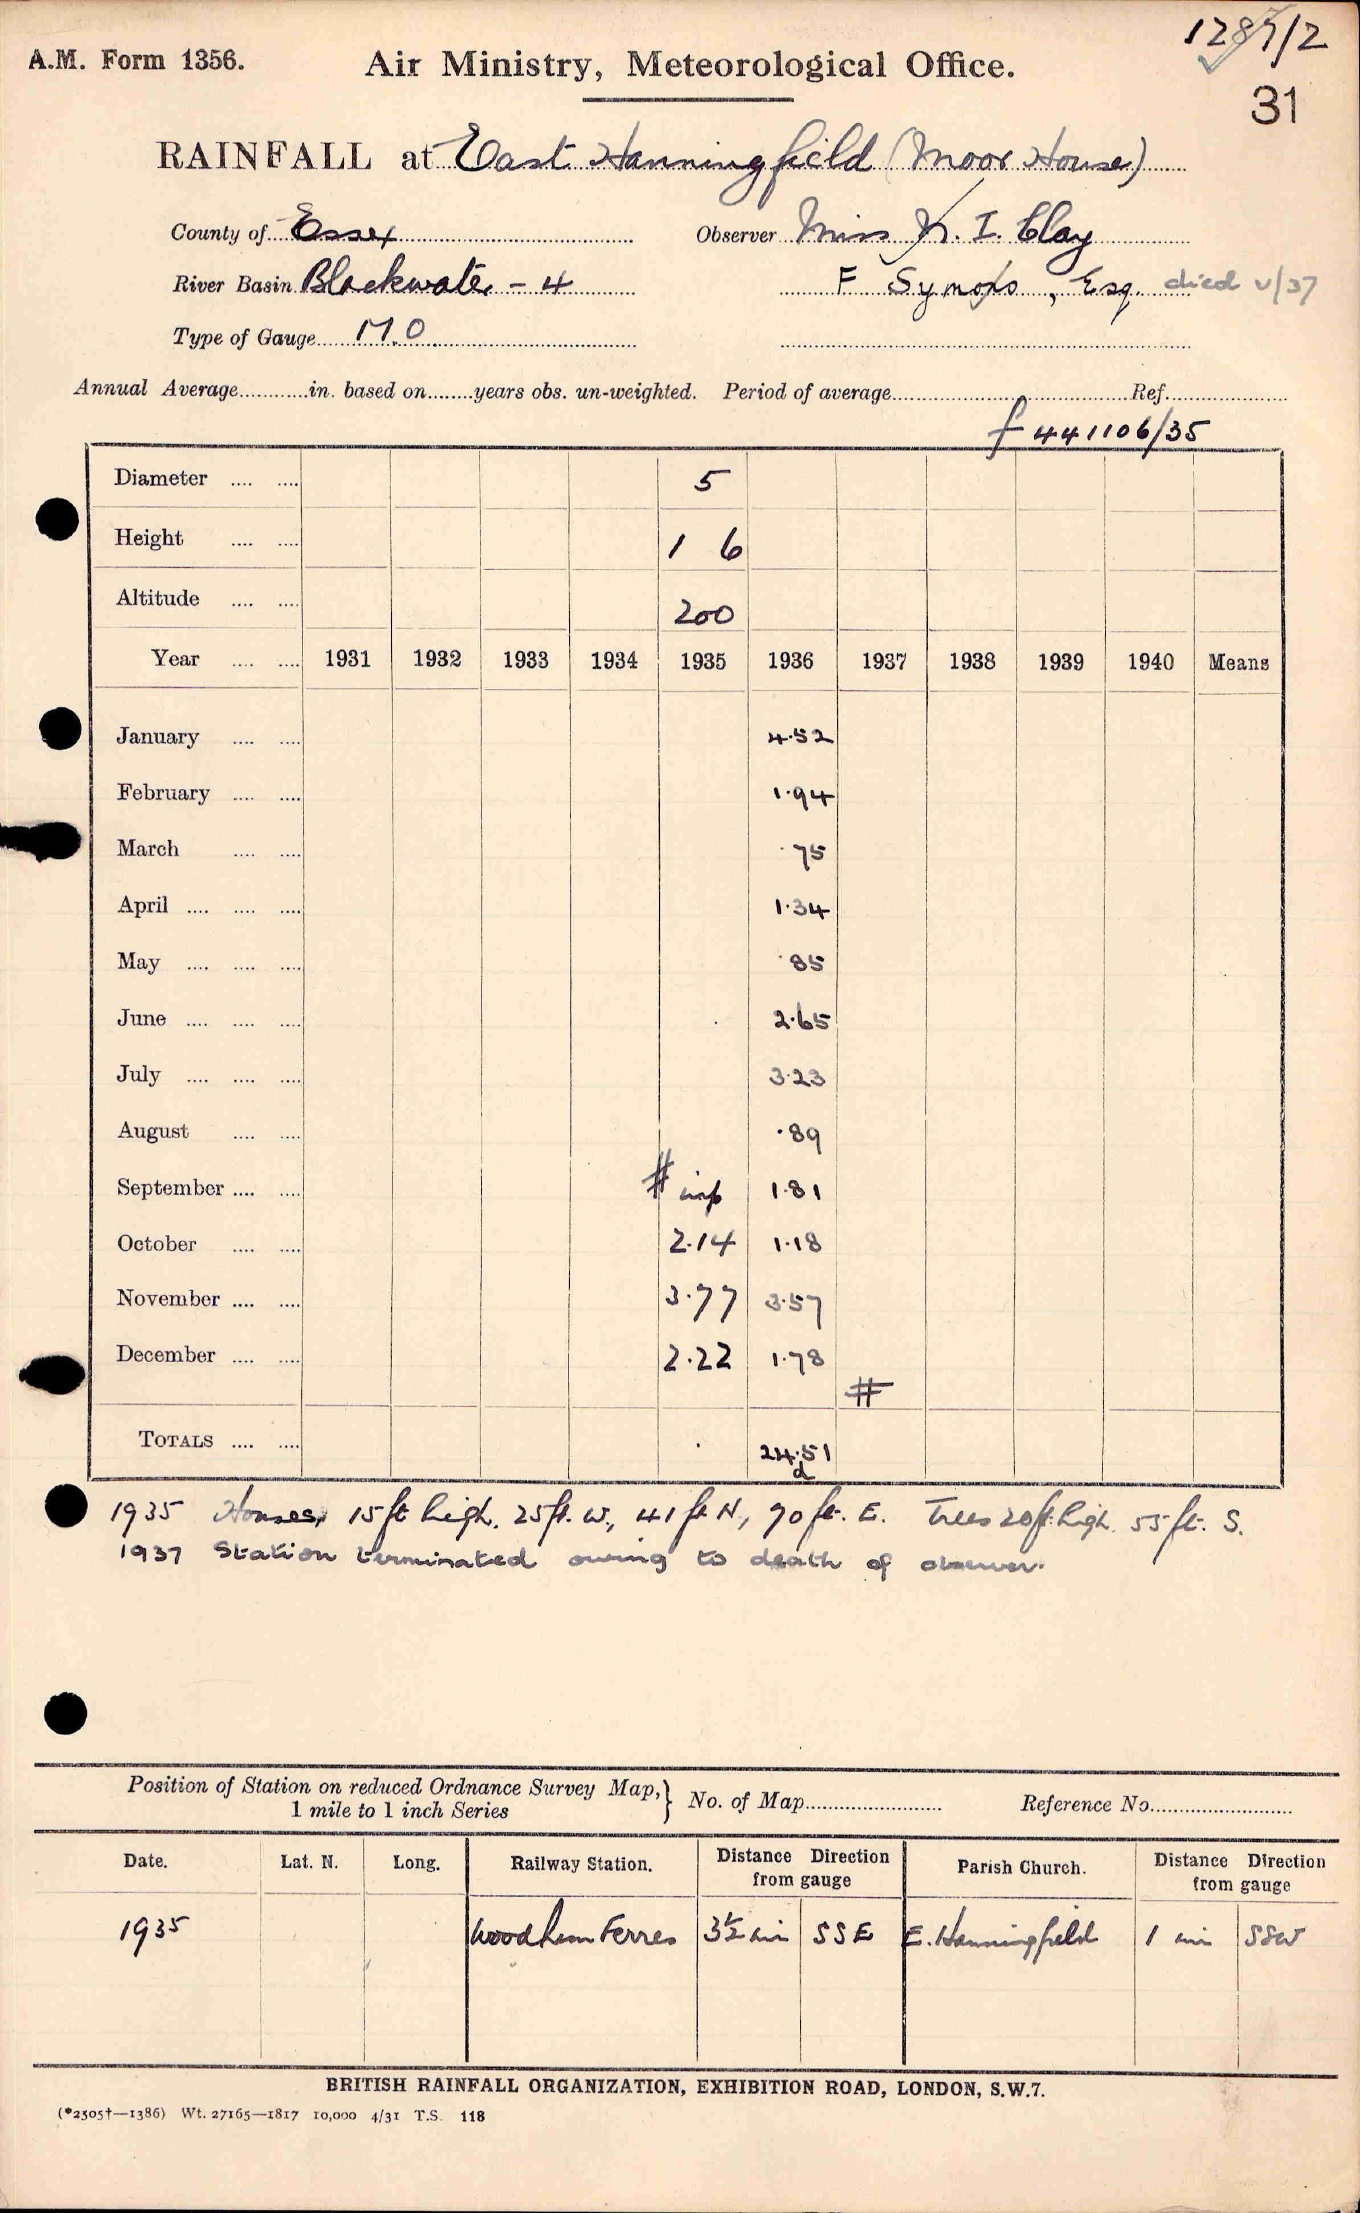 1287/2
A.M. Form 1356.
Air Ministry, Meteorological Office.
31
RAINFALL at East Hanningfield (Moor House)
County of Essex Observer Miss K. I. Clay
River Basin Blackwater - 4 F Symons, Esq. died v/37
Type of Gauge M.O
Annual Average............in. based on........years obs. un-weighted. Period of average........................Ref........................
f 441106/35
Diameter .... .... 5
Height .... .... 1 6
Altitude .... .... 200
Year .... .... 1931 1932 1933 1934 1935 1936 1937 1938 1939 1940 Means
January .... .... 4.52
February .... .... 1.94
March .... .... .75
April .... .... .... 1.34
May .... .... .... .85
June .... .... .... 2.65
July .... .... .... 3.23
August .... .... .89
September .... .... # inp 1.81
October .... .... 2.14 1.18
November .... .... 3.77 3.57
December .... .... 2.22 1.78
#
TOTALS .... .... 24.51
d
1935 Houses, 15ft high. 25ft. W., 41ft N, 70ft. E. Trees 20ft high 55ft. S.
1937 Station terminated owing to death of observer.
Position of Station on reduced Ordnance Survey Map,} No. of Map........................ Reference No........................
1 mile to 1 inch Series
Date. Lat. N. Long. Railway Station. Distance Direction from gauge Parish Church. Distance Direction from gauge
1935 Woodham Ferres 3½ mi SSE E. Hanningfield 1 mi SSW
BRITISH RAINFALL ORGANIZATION, EXHIBITION ROAD, LONDON, S.W.7.
(*2505†—1386) Wt. 27165—1817 10,000 4/31 T.S. 118